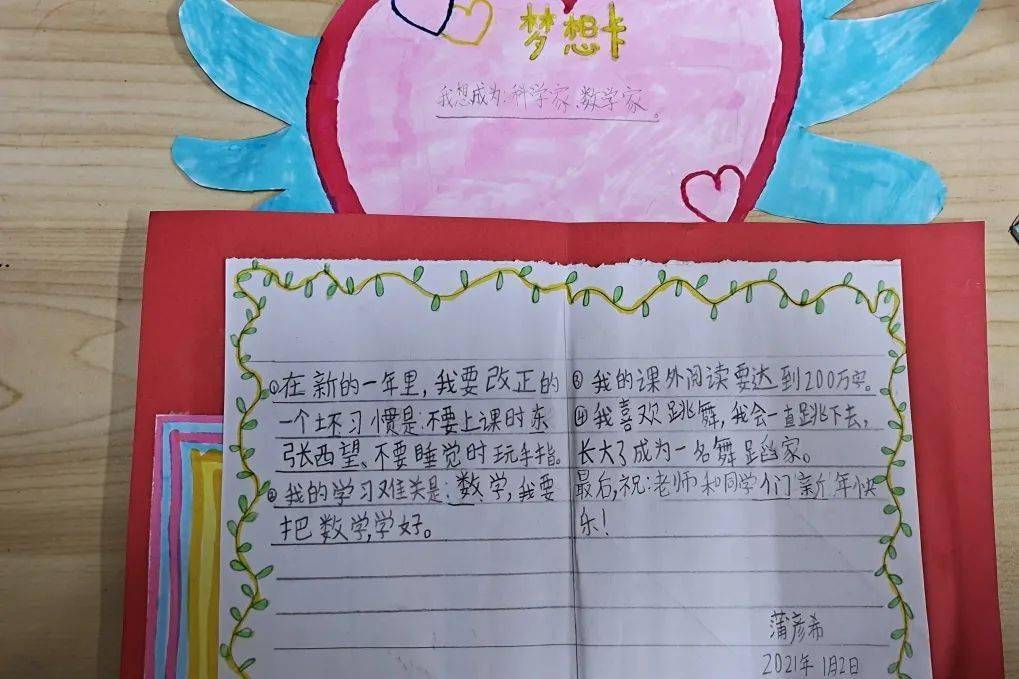 梦想卡
我想成为:科学家、数学家。
①在新的一年里,我要改正的
一个坏习惯是:不要上课时东
张西望、不要睡觉时玩手指。
②我的学习难关是:数学,我要
把数学学好。
③我的课外阅读要达到200万字。
④我喜欢跳舞,我会一直跳下去,
长大了成为一名舞蹈家。
最后,祝:老师和同学们新年快
乐!
蒲彦希
2021年1月2日